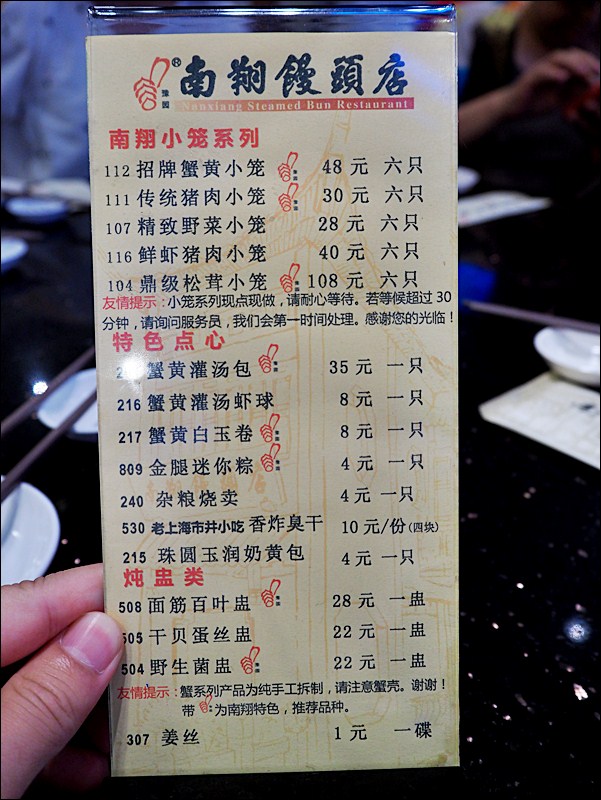 豫园 ® 南翔饅頭店
Nanxiang Steamed Bun Restaurant
南翔小笼系列
112 招牌蟹黄小笼 豫园 48 元 六只
111 传统猪肉小笼 豫园 30 元 六只
107 精致野菜小笼 28 元 六只
116 鲜虾猪肉小笼 40 元 六只
104 鼎级松茸小笼 豫园 108 元 六只
友情提示：小笼系列现点现做，请耐心等待。若等候超过 30
分钟，请询问服务员，我们会第一时间处理。感谢您的光临！
特色点心
蟹黄灌汤包 豫园 35 元 一只
216 蟹黄灌汤虾球 8 元 一只
217 蟹黄白玉卷 豫园 8 元 一只
809 金腿迷你粽 豫园 4 元 一只
240 杂粮烧卖 4 元 一只
530 老上海市井小吃 香炸臭干 10 元/份(四块)
215 珠圆玉润奶黄包 4 元 一只
炖盅类
508 面筋百叶盅 豫园 28 元 一盅
505 干贝蛋丝盅 22 元 一盅
504 野生菌盅 豫园 22 元 一盅
友情提示：蟹系列产品为纯手工拆制，请注意蟹壳。谢谢！
带 豫园 为南翔特色，推荐品种。
307 姜丝 1 元 一碟